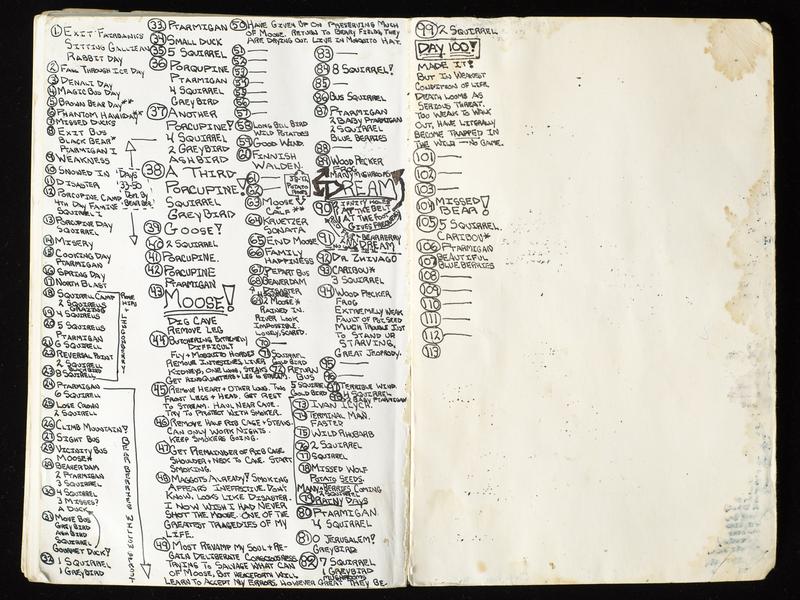 ① EXIT FAIRBANKS
SITTING GALLIEAN
RABBIT DAY
② FALL THROUGH ICE DAY
③ DENALI DAY
④ MAGIC BUS DAY
⑤ BROWN BEAR DAY
⑥
⑦ MISSED DUCKS
⑧ EXIT BUS
BLACK BEAR*
PTARMIGAN 1
⑨ WEAKNESS
⑩ SNOWED IN
⑪ DISASTER
⑫ PORCUPINE CAMP
4TH DAY FAMINE
SQUIRREL 1
⑬ PORCUPINE DAY
SQUIRREL
⑭ MISERY
⑮ COOKING DAY
PTARMIGAN
⑯ SPRING DAY
⑰ NORTH BLAST
⑱ SQUIRREL CAMP
2 SQUIRRELS
⑲ 4 SQUIRRELS
⑳ 5 SQUIRRELS
PTARMIGAN
㉑ 6 SQUIRRELL
㉒ REVERSAL POINT
2 SQUIRREL
㉓ 8 SQUIRREL
㉔ PTARMIGAN
6 SQUIRREL
㉕ LOSE CROWN
2 SQUIRREL
㉖ CLIMB MOUNTAIN!
㉗ SIGHT BUS
㉘ VICINITY BUS
MOOSE*
㉙ BEAVERDAM
2 PTARMIGAN
3 SQUIRREL
㉚ 4 SQUIRREL
3 MISSES?
A DUCK
㉛ MOVE BUS
GREY BIRD
ASH BIRD
SQUIRREL
GOURMET DUCK!
㉜ 1 SQUIRREL
1 GREYBIRD
㉝ PTARMIGAN
㉞ SMALL DUCK
㉟ 5 SQUIRREL
㊱ PORQUPINE
PTARMIGAN
4 SQUIRREL
GREYBIRD
㊲ ANOTHER
PORCUPINE!
4 SQUIRREL
2 GREYBIRD
ASHBIRD
㊳ A THIRD
PORCUPINE!
SQUIRREL
GREYBIRD
㊴ GOOSE!
㊵ 2 SQUIRREL
㊶ PORCUPINE.
㊷ PORCUPINE
PTARMIGAN
㊸ MOOSE!
DIG CAVE
REMOVE LEG
㊹ BUTCHERING EXTREMELY
DIFFICULT
FLY + MOSQUITO HORDES
REMOVE INTESTINES, LIVER
KIDNEYS, ONE LUNG, STEAKS
GET HINDQUARTERS + LEG TO STREAM.
㊺ REMOVE HEART + OTHER LUNG. TWO
FRONT LEGS + HEAD. GET REST
TO STREAM. HAUL NEAR CAVE.
TRY TO PROTECT WITH SMOKER.
㊻ REMOVE HALF RIB CAGE + STEAKS.
CAN ONLY WORK NIGHTS.
KEEP SMOKERS GOING.
㊼ GET REMAINDER OF RIB CAGE
SHOULDER + NECK TO CAVE. START
SMOKING.
㊽ MAGGOTS ALREADY! SMOKING
APPEARS INEFFECTIVE. DON'T
KNOW, LOOKS LIKE DISASTER.
I NOW WISH I HAD NEVER
SHOT THE MOOSE. ONE OF THE
GREATEST TRAGEDIES OF MY
LIFE.
㊾ MOST REVAMP MY SOUL + RE-
GAIN DELIBERATE CONSCIOUSNESS
TRYING TO SALVAGE WHAT CAN
OF MOOSE, BUT HENCEFORTH WILL
LEARN TO ACCEPT MY ERRORS, HOWEVER GREAT THEY BE.
㊿ HAVE GIVEN UP ON PRESERVING MUCH
OF MOOSE. RETURN TO BERRY FIELDS. THEY
ARE DRYING OUT. LIVE IN MOSQUITO HAT.
(51)
(52)
(53)
(54)
(58) LONG BILL BIRD
WILD POTATOES
(59) GOOD WIND.
(60) FINNISH
WALDEN.
(61)
(62)
(63) MOOSE
CALF**
(64) KRUETZER
SONATA
(65) END MOOSE
(66) FAMILY
HAPPINESS
(67) DEPART BUS
(68) BEAVERDAM
(69) DISASTER
2 MOOSE*
RAINED IN.
RIVER LOOK
IMPOSSIBLE.
LONELY, SCARED.
(70)
(71) SQUIRREL
GOLD BIRD
(72) RETURN
BUS
5 SQUIRREL
GOLD BIRD
(73) IVAN ILYCH.
(74) TERMINAL MAN.
FASTER
(75) WILD RHUBARB
(76) 2 SQUIRREL
(77) SQUIRREL
(78) MISSED WOLF
POTATO SEEDS.
MANY BERRIES COMING
(79) RAINY DAYS
(80) PTARMIGAN.
4 SQUIRREL
(81) O JERUSALEM!
GREYBIRD
(82) 7 SQUIRREL
1 GREYBIRD
MUSHROOMS
(83)
(84) 8 SQUIRREL!
(85)
(86) BUS SQUIRREL
(87) PTARMIGAN
2 BABY PTARMIGAN
2 SQUIRREL
BLUE BERRIES
(88)
(89) WOOD PECKER
FROG
MANY MUSHROOMS
DREAM
(90)
(91) BEARBERRY
DREAM
(92) DR. ZHIVAGO
(93) CARIBOU*
3 SQUIRREL
(94) WOOD PECKER
FROG
EXTREMELY WEAK
FAULT OF POT. SEED
MUCH TROUBLE JUST
TO STAND UP
STARVING.
GREAT JEOPARDY.
(95)
(97) TERRIBLE WIND
4 SQUIRREL
BABY PTARMIGAN
(99) 2 SQUIRREL
DAY 100!
MADE IT!
BUT IN WEAKEST
CONDITION OF LIFE.
DEATH LOOMS AS
SERIOUS THREAT.
TOO WEAK TO WALK
OUT, HAVE LITERALLY
BECOME TRAPPED IN
THE WILD—NO GAME.
(101)
(102)
(103)
(104) MISSED
BEAR!
(105) 5 SQUIRREL.
CARIBOU*
(106) PTARMIGAN
(107) BEAUTIFUL
BLUE BERRIES
(108)
(109)
(110)
(111)
(112)
(113)